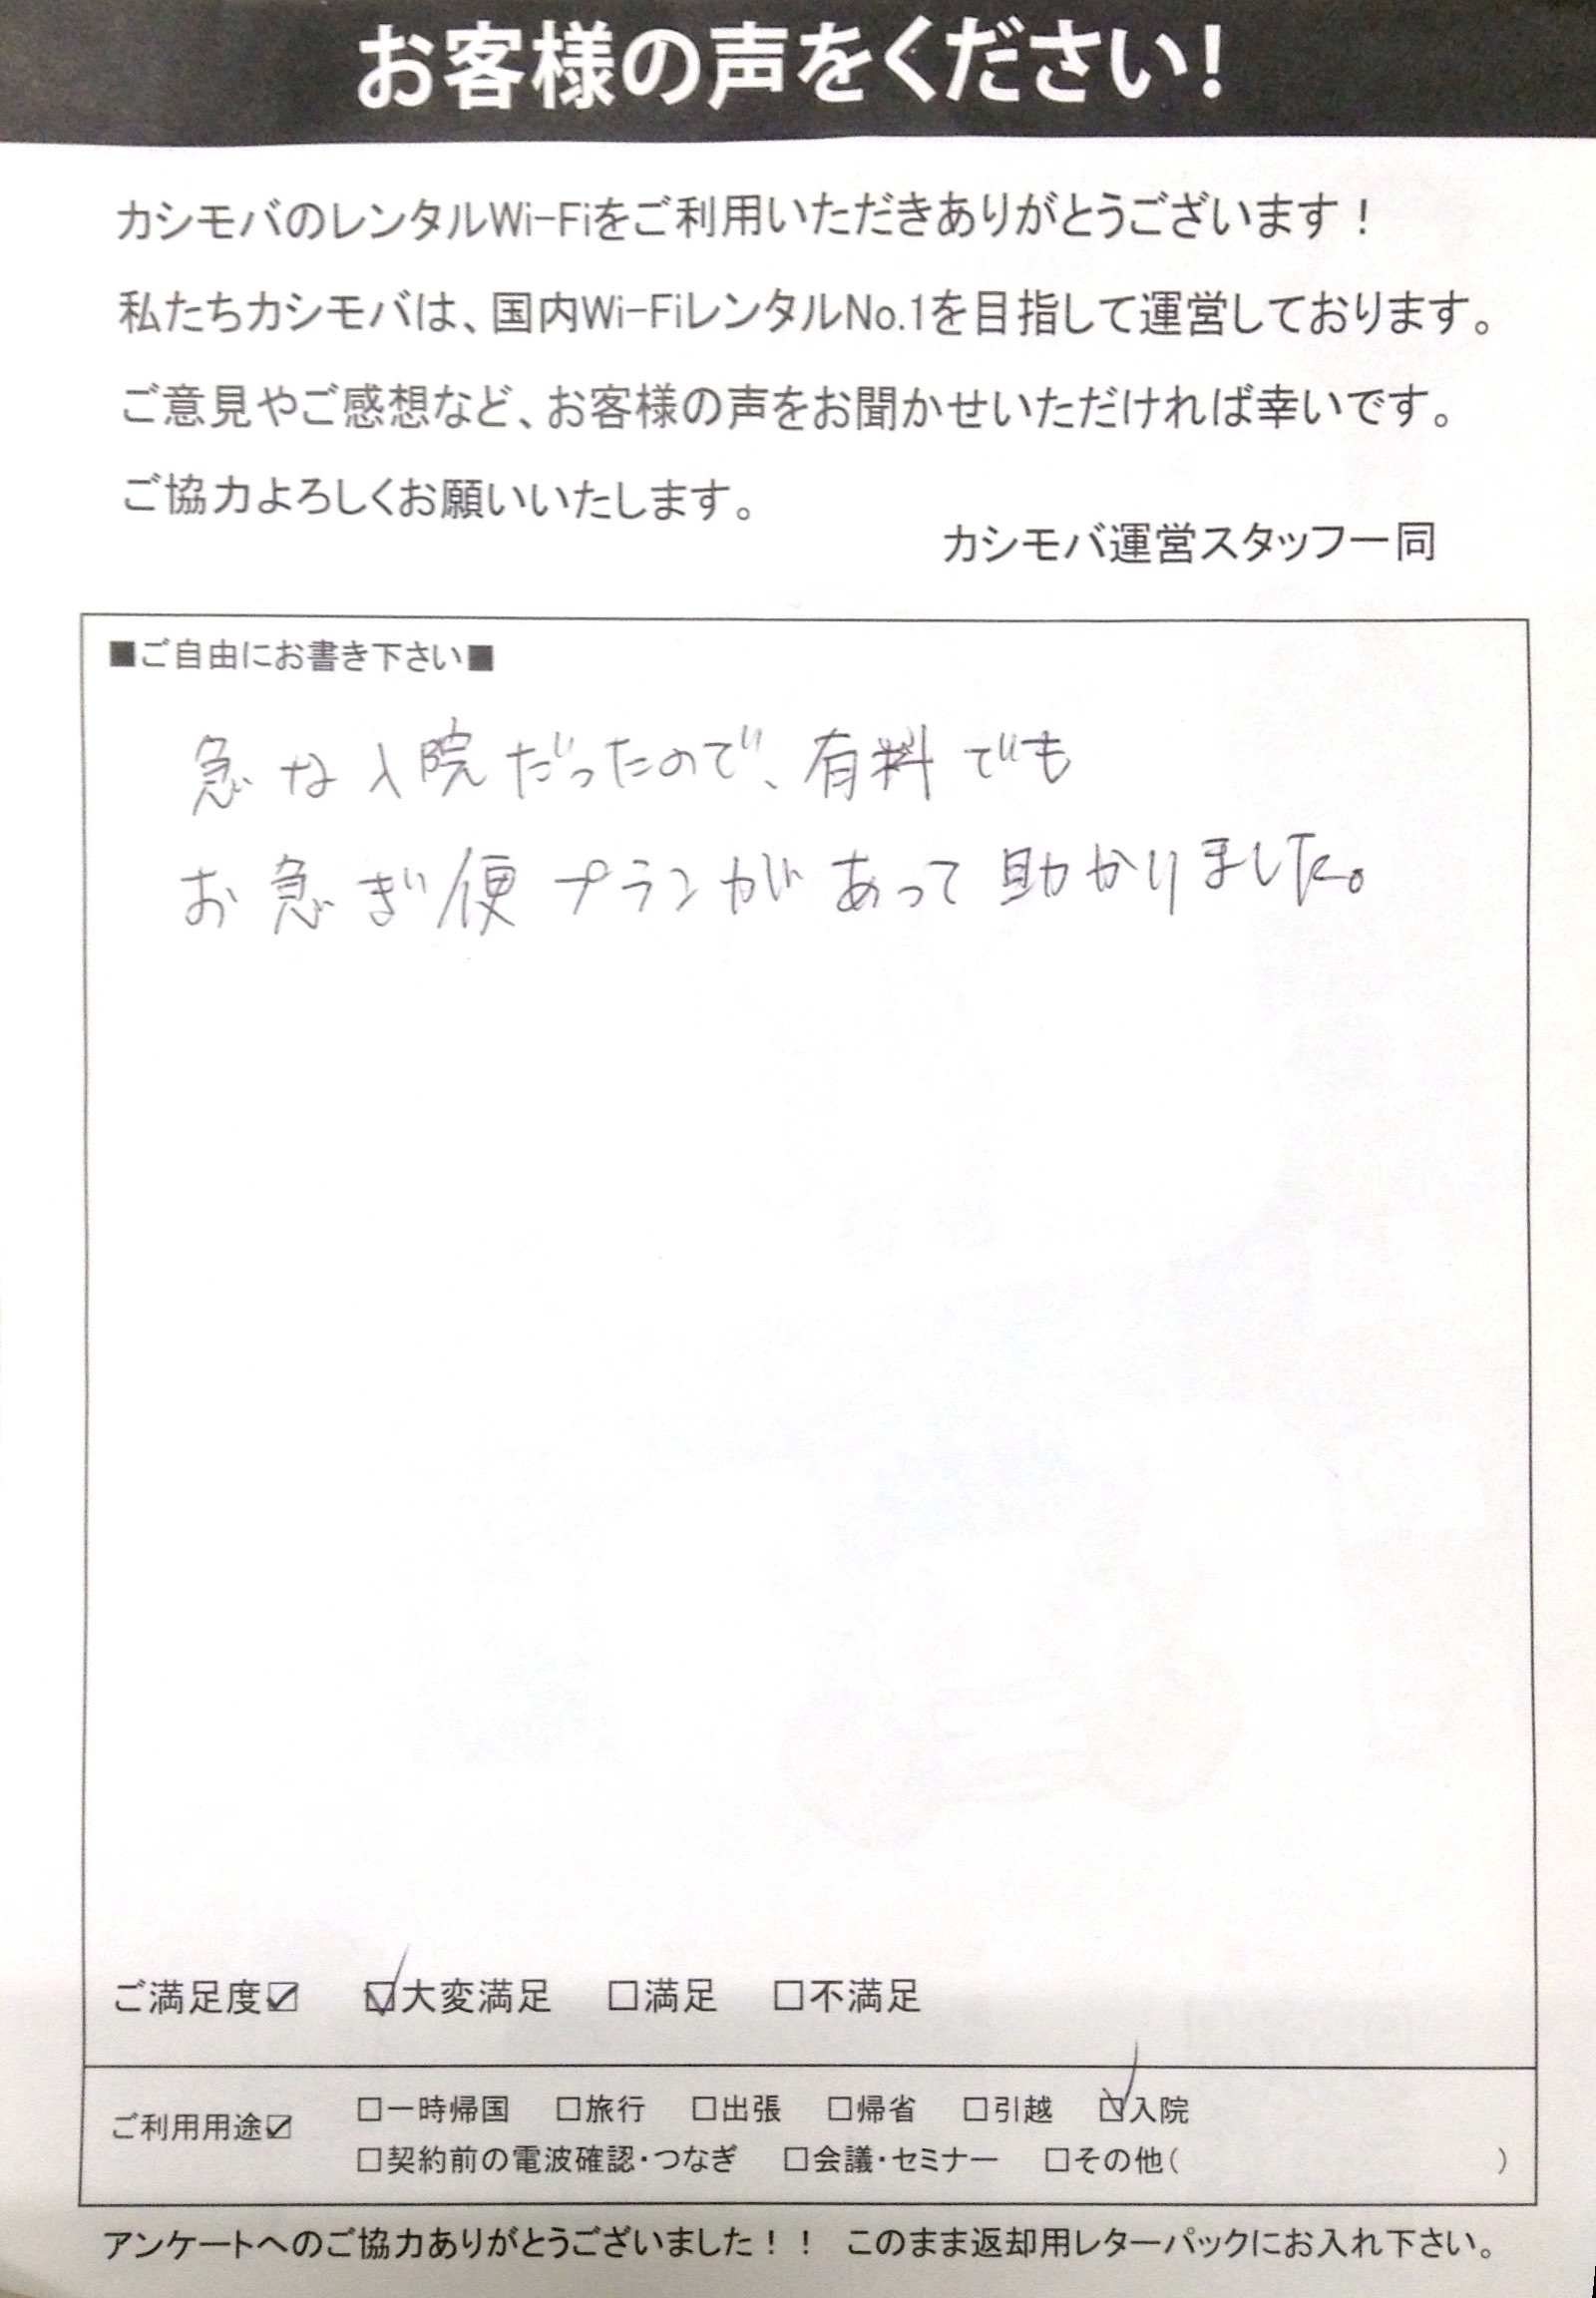 お客様の声をください!
カシモバのレンタルWi-Fiをご利用いただきありがとうございます！
私たちカシモバは、国内Wi-FiレンタルNo.1を目指して運営しております。
ご意見やご感想など、お客様の声をお聞かせいただければ幸いです。
ご協力よろしくお願いいたします。
カシモバ運営スタッフ一同
■ご自由にお書き下さい■
急な入院だったので、有料でも
お急ぎ便プランがあって助かりました。
ご満足度☑ ☑大変満足 □満足 □不満足
ご利用用途☑ □一時帰国 □旅行 □出張 □帰省 □引越 ☑入院
□契約前の電波確認・つなぎ □会議・セミナー □その他( )
アンケートへのご協力ありがとうございました！！ このまま返却用レターパックにお入れ下さい。